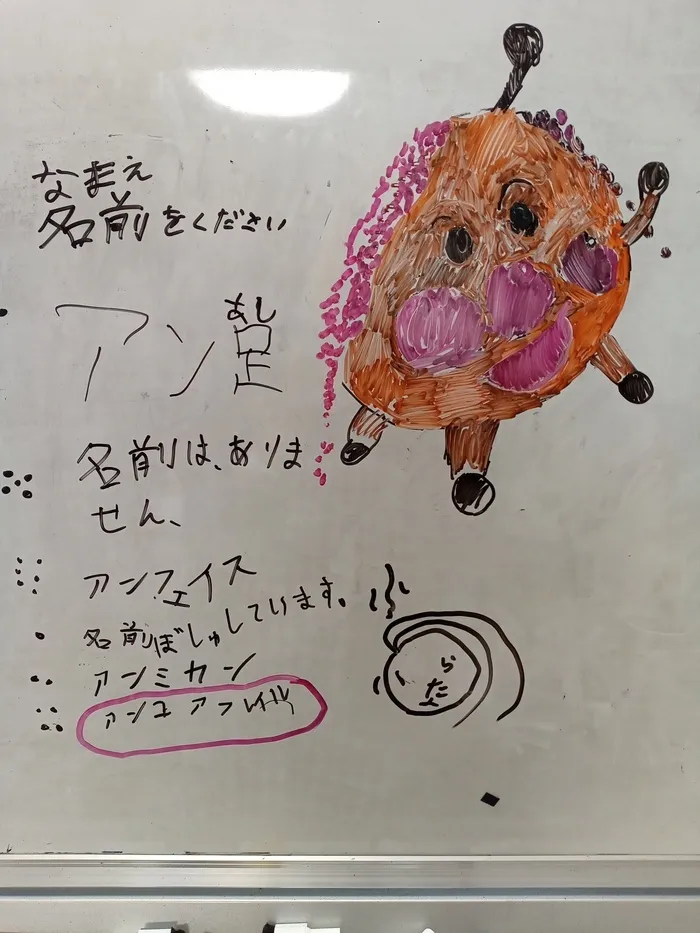 なまえ
名前をください
あし
アン足
名前は、ありま
せん、
アンフェイス
名前ぼしゅしています。
アンミカン
アンユアン
らだ